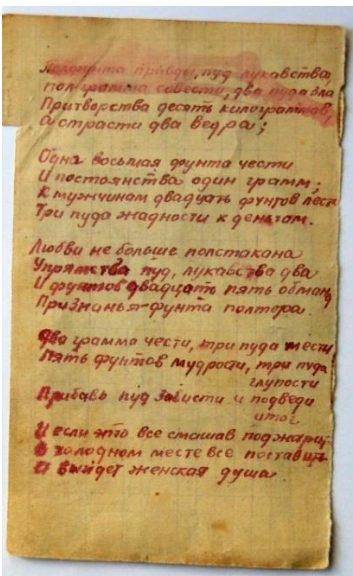 Полфунта правды, пуд лукавства,
пол грамма совести, два пуда зла
Притворства десять килограммов,
а страсти два ведра;
Одна восьмая фунта чести
И постоянства один грамм;
К мужчинам двадцать фунтов лести
Три пуда жадности к деньгам.
Любви не больше полстакана
Упрямства пуд, лукавства два
И фунтов двадцать пять обмана,
Признанья-фунта полтора.
Два грамма чести, три пуда мести
Пять фунтов мудрости, три пуда
глупости
Прибавь пуд зависти и подведи
итог
И если это все смешав поджарить
В холодном месте все поставить
И выйдет женская душа